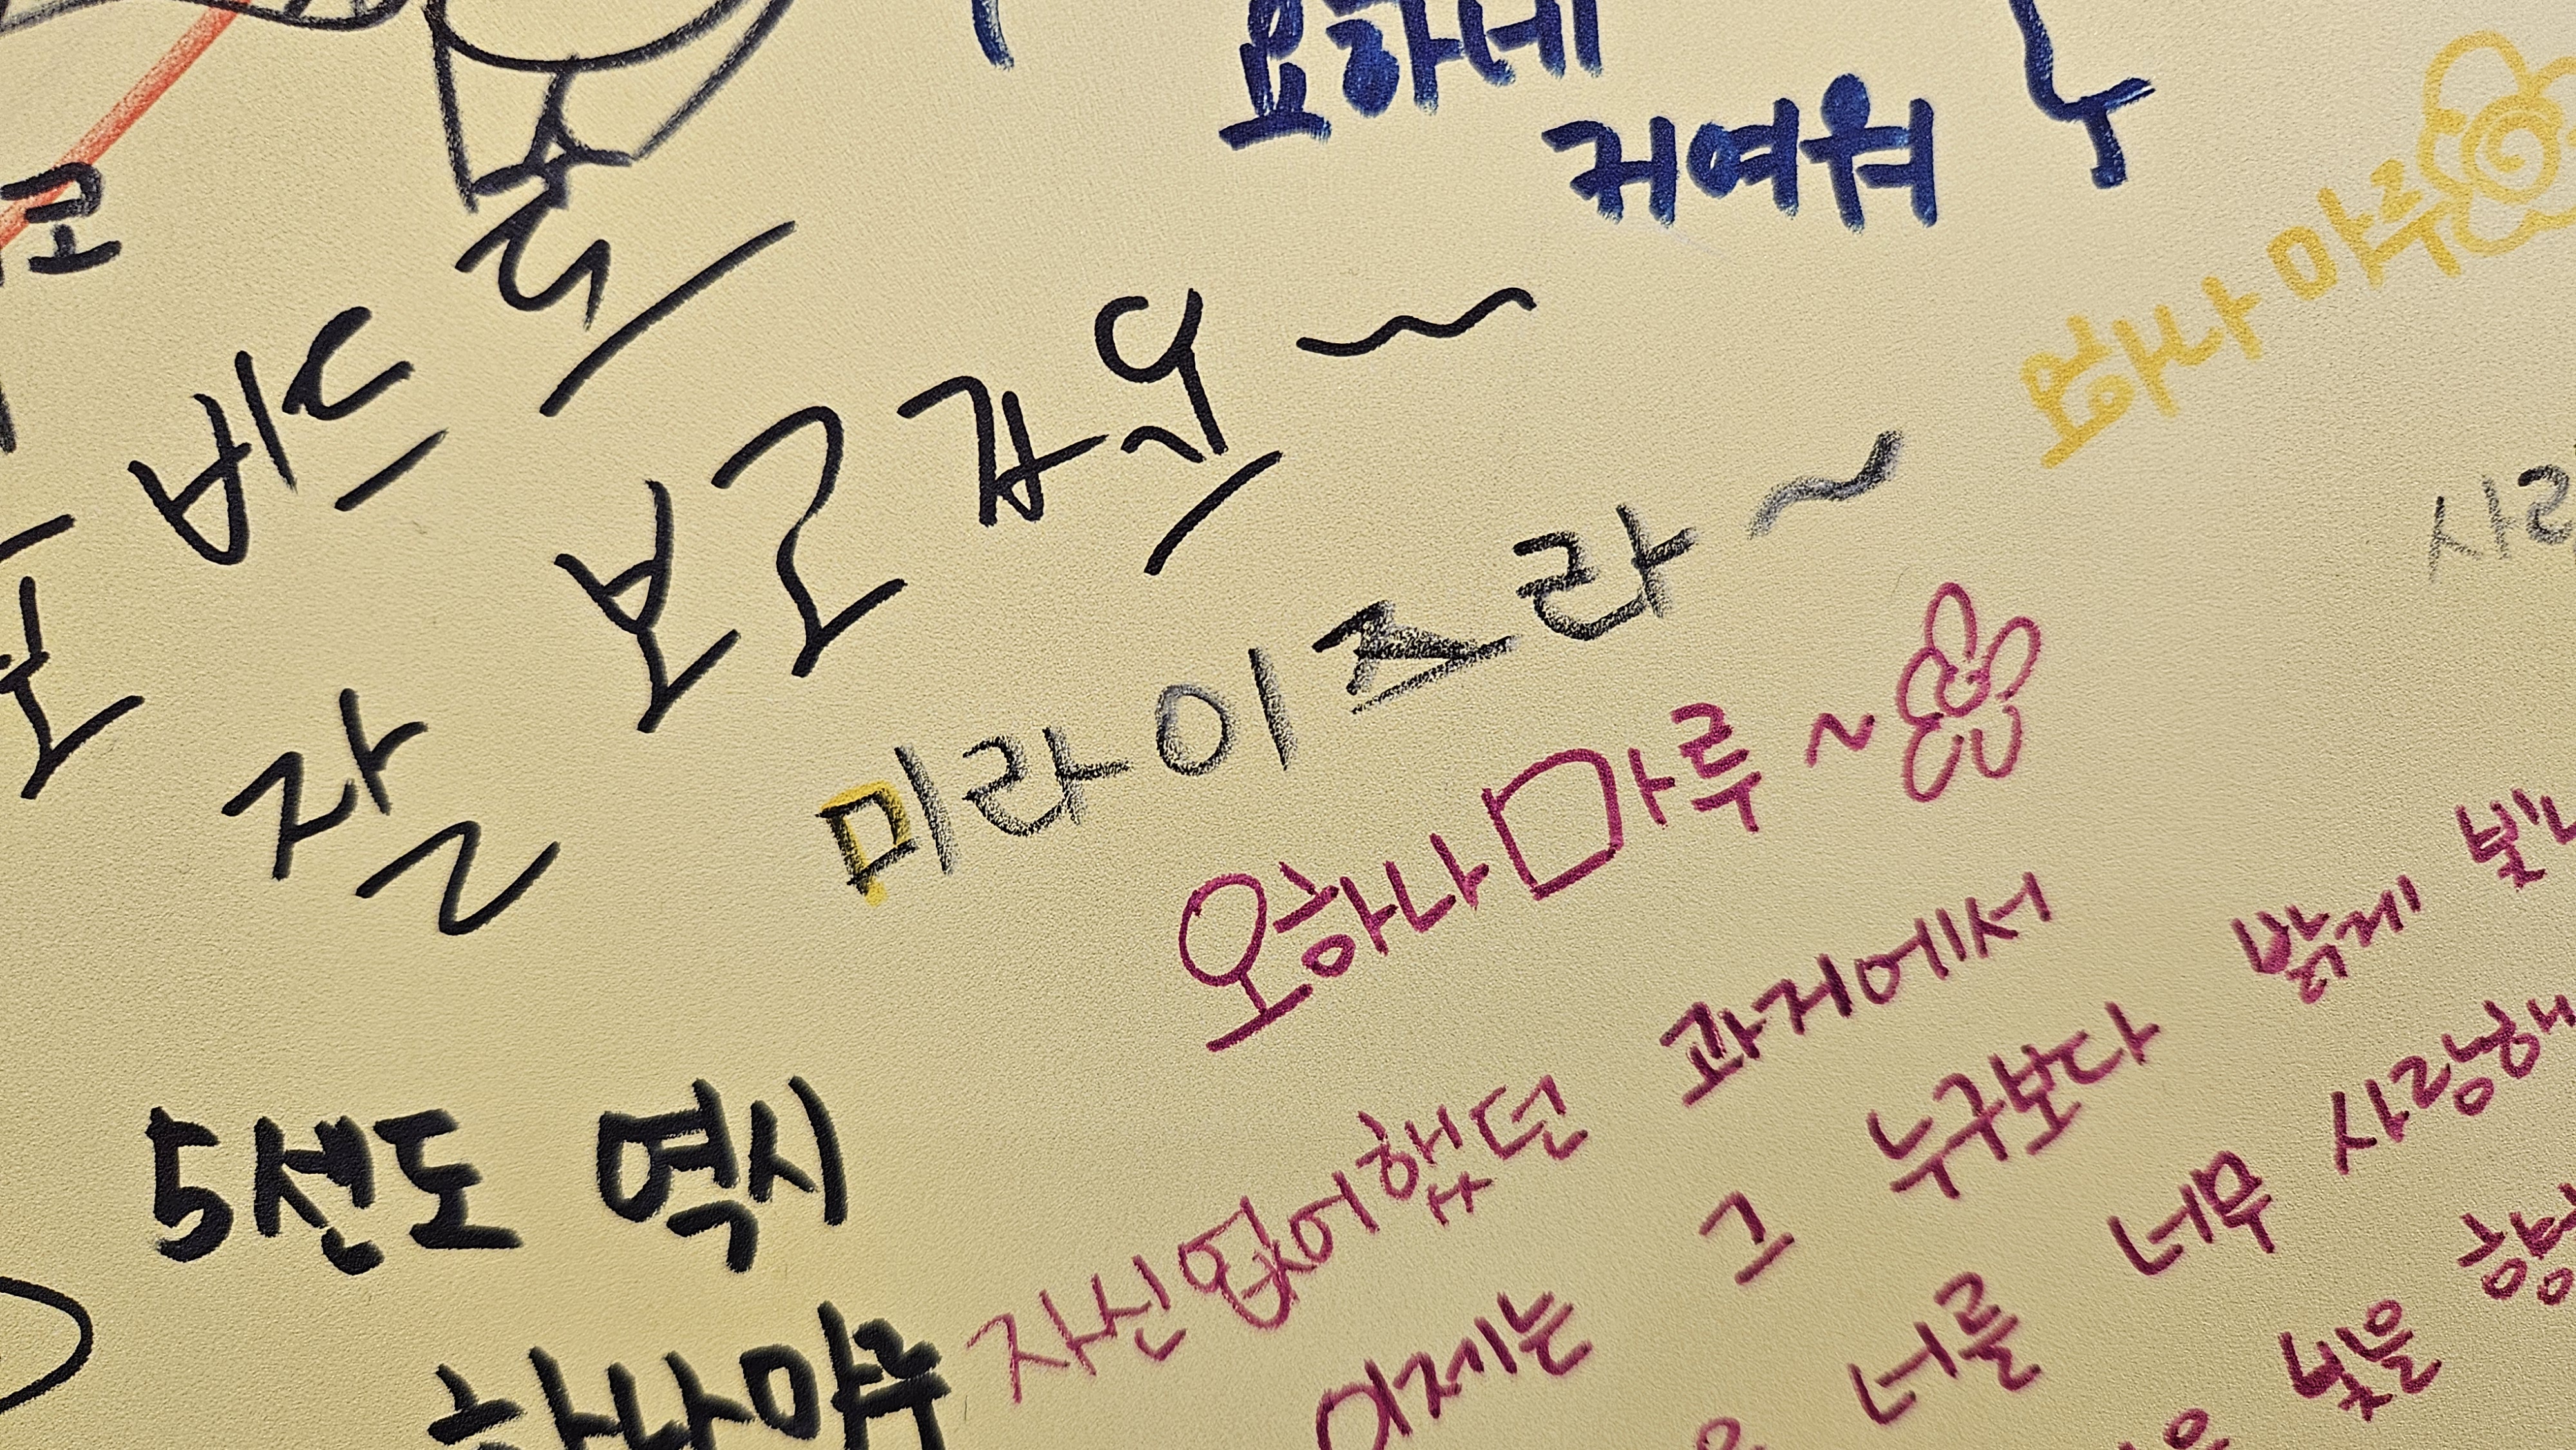 요하네
귀여워
오하나 마루
코
버드
잘 보고 감요~
미라이즈라~
오하나마루~
5센도 역시
하나마루
자신없어했던 과거에서
이제는 그 누구보다 밝게
너를 너무 사랑해
빛을